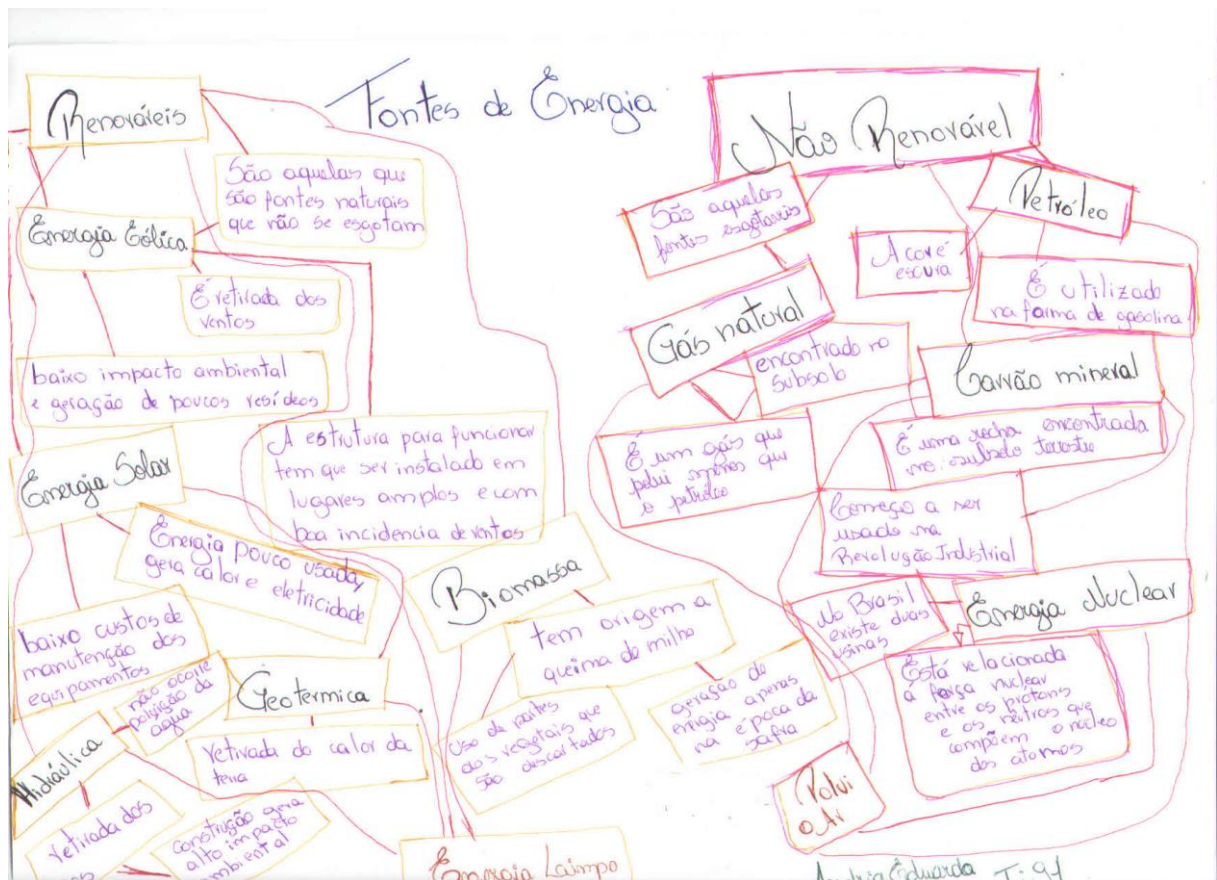 Fontes de Energia
Renováveis
São aquelas que
são fontes naturais
que não se esgotam
Energia Eólica
É retirada dos
ventos
baixo impacto ambiental
e geração de poucos resídeos
A estrutura para funcionar
tem que ser instalado em
lugares amplos e com
boa incidencia de ventos
Energia Solar
Energia pouco usada,
gera calor e eletricidade
baixo custos de
manutenção dos
equipamentos
Geotermica
retirada do calor da
terra
Hidráulica
não ocorre
poluição da
agua
retirada dos
construção gera
alto impacto
ambiental
Biomassa
tem origem a
queima do milho
uso de partes
dos vegetais que
são descartados
geração de
enrgia apenas
na época da
safra
Energia Laimpo
Não Renovável
São aquelas
fontes esgotaveis
Petróleo
A cor é
escura
É utilizado
na forma de gasolina
Gás natural
encontrado no
subsolo
É um gás que
polui menos que
o petróleo
Carvão mineral
É uma rocha encontrada
no subsolo terrestre
Começo a ser
usado na
Revolução Industrial
Energia Nuclear
No Brasil
existe duas
usinas
Está relacionada
a força nuclear
entre os protons
e os neutros que
compõem o núcleo
dos atomos
Polui
o Ar
Eduarda T: 91